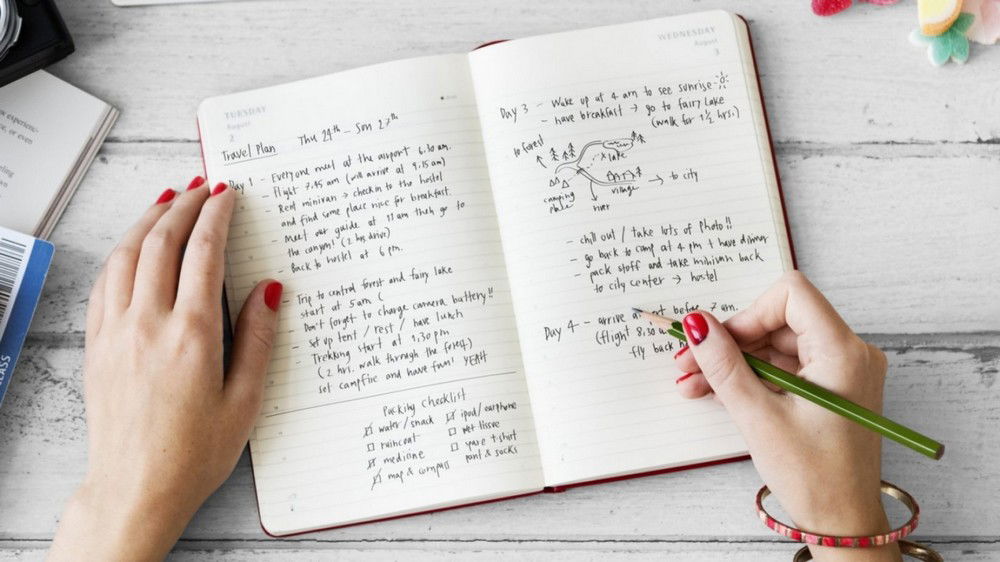 experience-
or even
CLASS
TUESDAY
August
2
Travel Plan Thu 24th - Sun 27th
Day 1 - Everyone meet at the airport 6.30 am.
- Flight 7.45 am (will arrive at 9.15 am)
- Rent minivan → check in to the hostel
and find some place nice for breakfast.
- Meet our guide at 11 am then go to
the canyon! (2 hrs drive)
- Back to hostel at 6 pm.
- Trip to central forest and fairy lake
start at 5 am (
- Don't forget to charge camera battery!!
- set up tent / rest / have lunch
- Trekking start at 1,30 pm
(2 hrs. walk through the forest)
set campfire and have fun! YEAH
Packing Checklist
water/snack
raincoat
medicine
map & compass
ipod/earphone
wet tissue
t-shirt
pant & socks
WEDNESDAY
August
3
Day 3 - Wake up at 4 am to see sunrise
- have breakfast → go to fairy lake
(walk for 1½ hrs.)
to forest
lake
camping
place
village
river
→ to city
- chill out / take lots of photo!!
- go back to camp at 4 pm + have dinner
- pack stuff and take minivan back
to city center → hostel
Day 4 - arrive before 7 am.
(flight 8,30
fly back